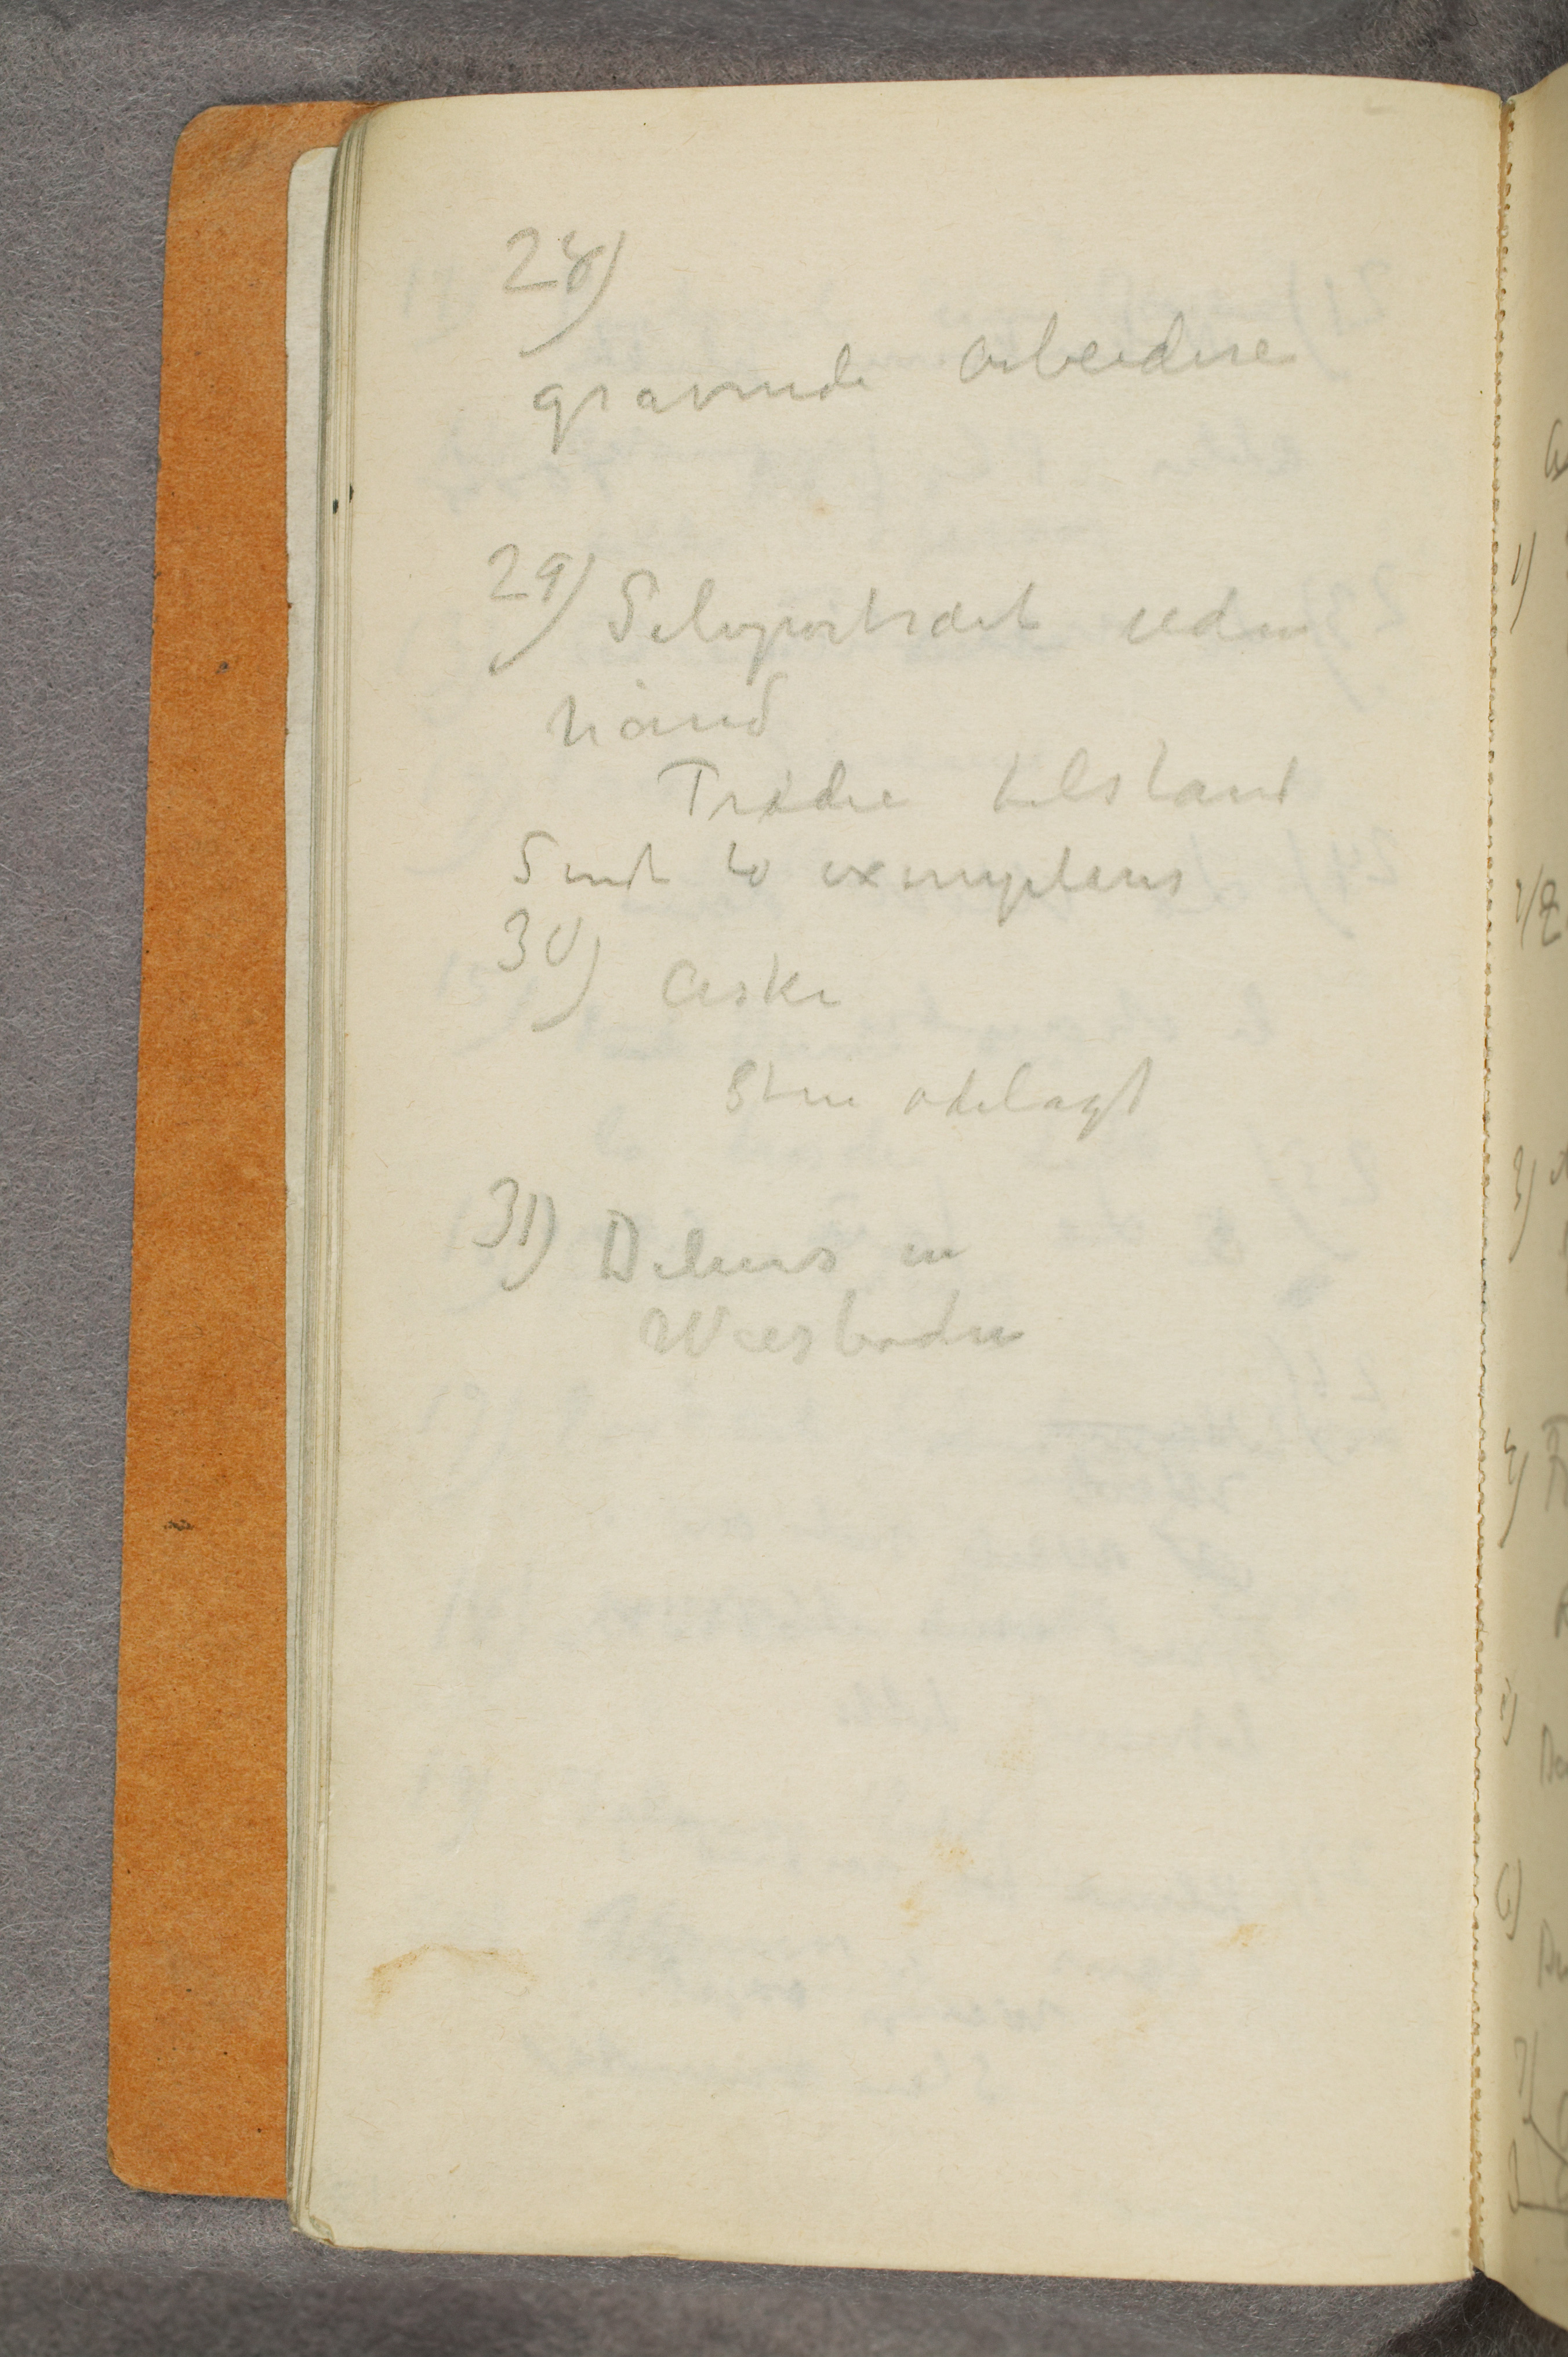 28)
gravende Arbeidere
29) Selvportræt uden
hånd
Tredie tilstand
Sendt to exemplarer
30) Aske
Sten ødelagt
31) Delius in
Wiesbaden